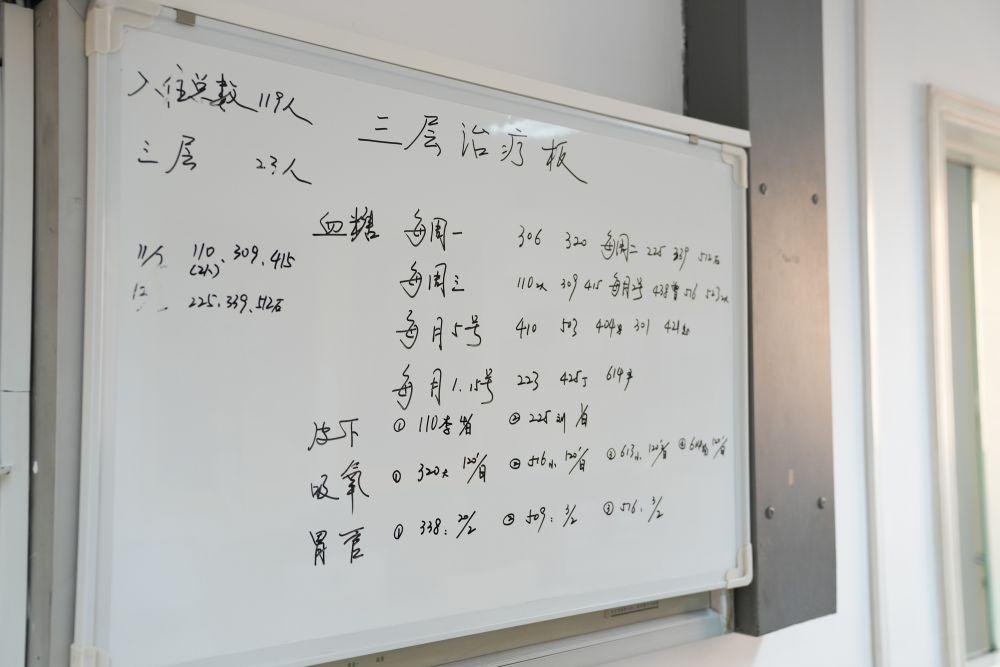 入住总数 119人
三层 23人
三层治疗板
11/ 110. 309. 415
(2人)
12 225. 339. 512左
血糖 每周一 306 320 每周二 225 339 512左
每周三 110 309 415 每月2号 438 516 523
每月5号 410 503 404 301 421
每月1.15号 223 425 614
皮下 ① 110李 ② 225刘
吸氧 ① 320大 120'/日 ② 516小 120'/日 ③ 613小 120'/日 ④ 120'/日
胃管 ① 338: 20/2 ② 509: 3/2 ③ 516. 3/2